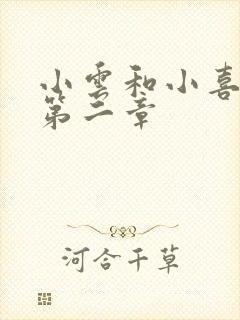 小雲和小喜
第二章
河合千草